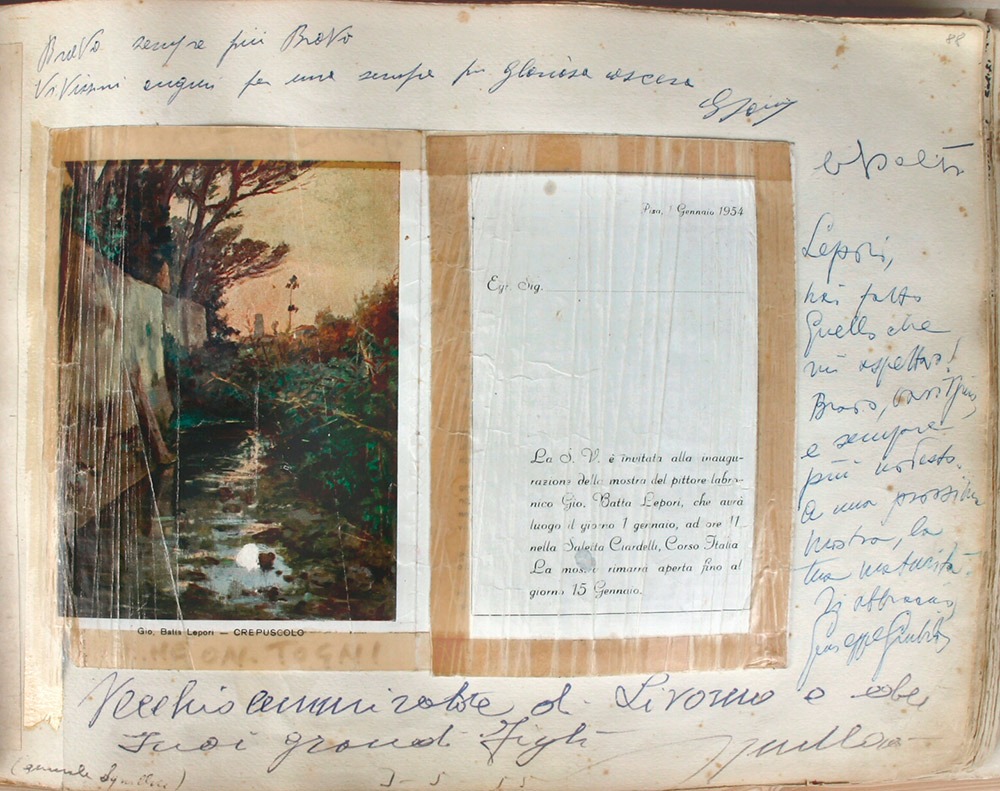 88
Bravo sempre più Bravo
Vivissimi auguri per una sempre più gloriosa ascesa
Pisa, 1 Gennaio 1954
Egr. Sig.
La S. V. è invitata alla inaugu-
razione della mostra del pittore labro-
nico Gio. Batta Lepori, che avrà
luogo il giorno 1 gennaio, ad ore 11
nella Saletta Ciardelli, Corso Italia
La mostra rimarrà aperta fino al
giorno 15 Gennaio.
Gio. Batta Lepori — CREPUSCOLO
N. TOGNI
Lepori,
hai fatto
quello che
mi aspettavo!
Bravo, bravissimo,
e sempre
più modesto.
A una prossima
mostra, la
tua maturità.
Ti abbraccio
Giuseppe
Vecchio ammiratore di Livorno e
suoi grandi Figli
3-5-55